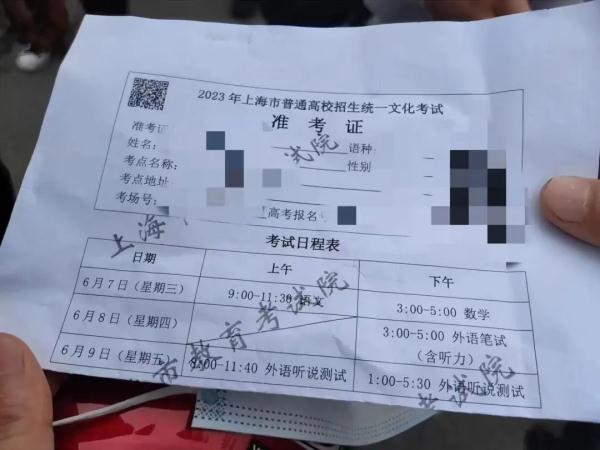 2023年上海市普通高校招生统一文化考试
准考证
准考证
姓名: 语种
考点名称: 性别
考点地址:
考场号:
高考报名
考试日程表
日期 上午 下午
6月7日(星期三) 9:00-11:30 语文 3:00-5:00 数学
6月8日(星期四) 3:00-5:00 外语笔试
(含听力)
6月9日(星期五) 8:00-11:40 外语听说测试 1:00-5:30 外语听说测试
上海
试院
市教育考试院
考试院